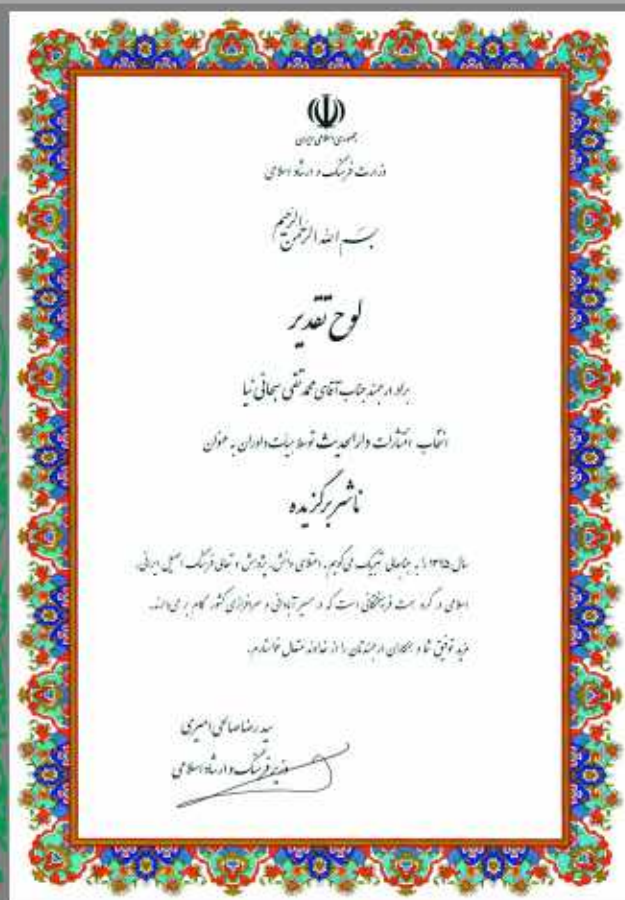 جمهوری اسلامی ایران
وزارت فرهنگ و ارشاد اسلامی
بسم الله الرحمن الرحیم
لوح تقدیر
برادر ارجمند جناب آقای محمد تقی سبحانی نیا
انتخاب انتشارات دارالحدیث توسط هیات داوران به عنوان
ناشر برگزیده
سال ۱۳۹۵ را به جنابعالی تبریک می گویم. اعتلای دانش، پژوهش و تعالی فرهنگ اصیل ایرانی،
اسلامی در گرو همت فرهیختگانی است که در مسیر آبادانی و سرافرازی کشور گام بر می دارند.
مزید توفیق شما و همکاران ارجمندتان را از خداوند متعال خواستارم.
سید رضا صالحی امیری
وزیر فرهنگ و ارشاد اسلامی